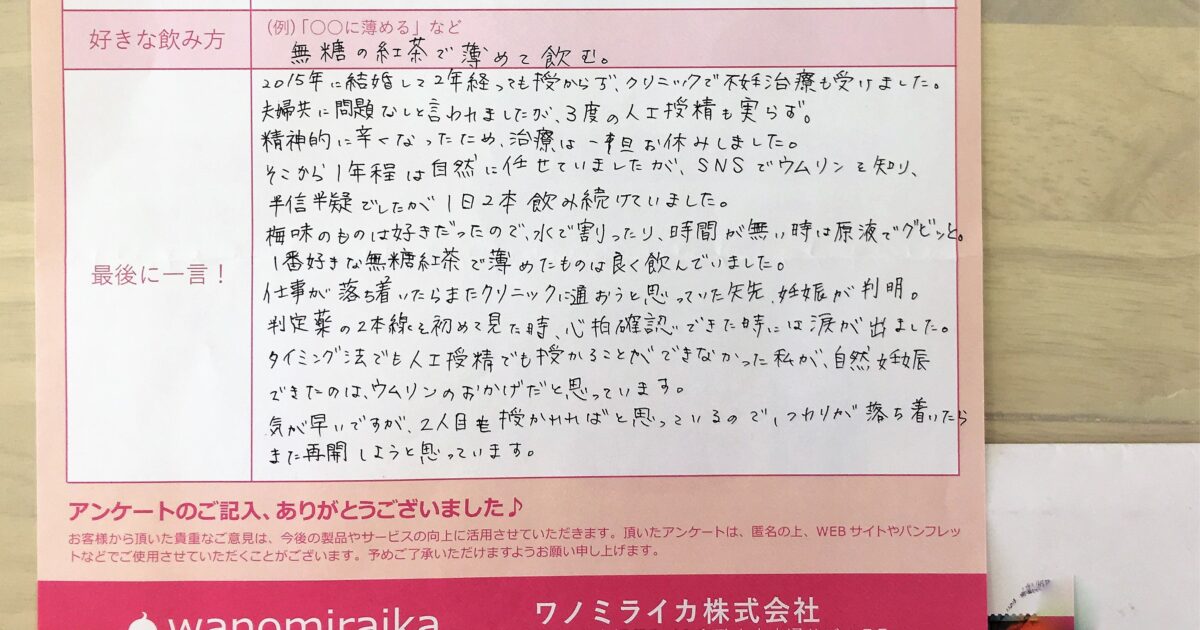 好きな飲み方
(例)「〇〇に薄める」など
無糖の紅茶で薄めて飲む。
最後に一言！
2015年に結婚して2年経っても授からず、クリニックで不妊治療も受けました。
夫婦共に問題なしと言われましたが、3度の人工授精も実らず。
精神的に辛くなったため、治療は一旦お休みしました。
そこから1年程は自然に任せていましたが、SNSでウムリンを知り、
半信半疑でしたが1日2本飲み続けていました。
梅味のものは好きだったので、水で割ったり、時間が無い時は原液でグビッと。
1番好きな無糖紅茶で薄めたものは良く飲んでいました。
仕事が落ち着いたらまたクリニックに通おうと思っていた矢先、妊娠が判明。
判定薬の2本線を初めて見た時、心拍確認できた時には涙が出ました。
タイミング法でも人工授精でも授かることができなかった私が、自然妊娠
できたのは、ウムリンのおかげだと思っています。
気が早いですが、2人目も授かればと思っているので、つわりが落ち着いたら
また再開しようと思っています。
アンケートのご記入、ありがとうございました♪
お客様から頂いた貴重なご意見は、今後の製品やサービスの向上に活用させていただきます。頂いたアンケートは、匿名の上、WEBサイトやパンフレッ
トなどでご使用させていただくことがございます。予めご了承いただけますようお願い申し上げます。
wanomiraika
ワノミライカ株式会社